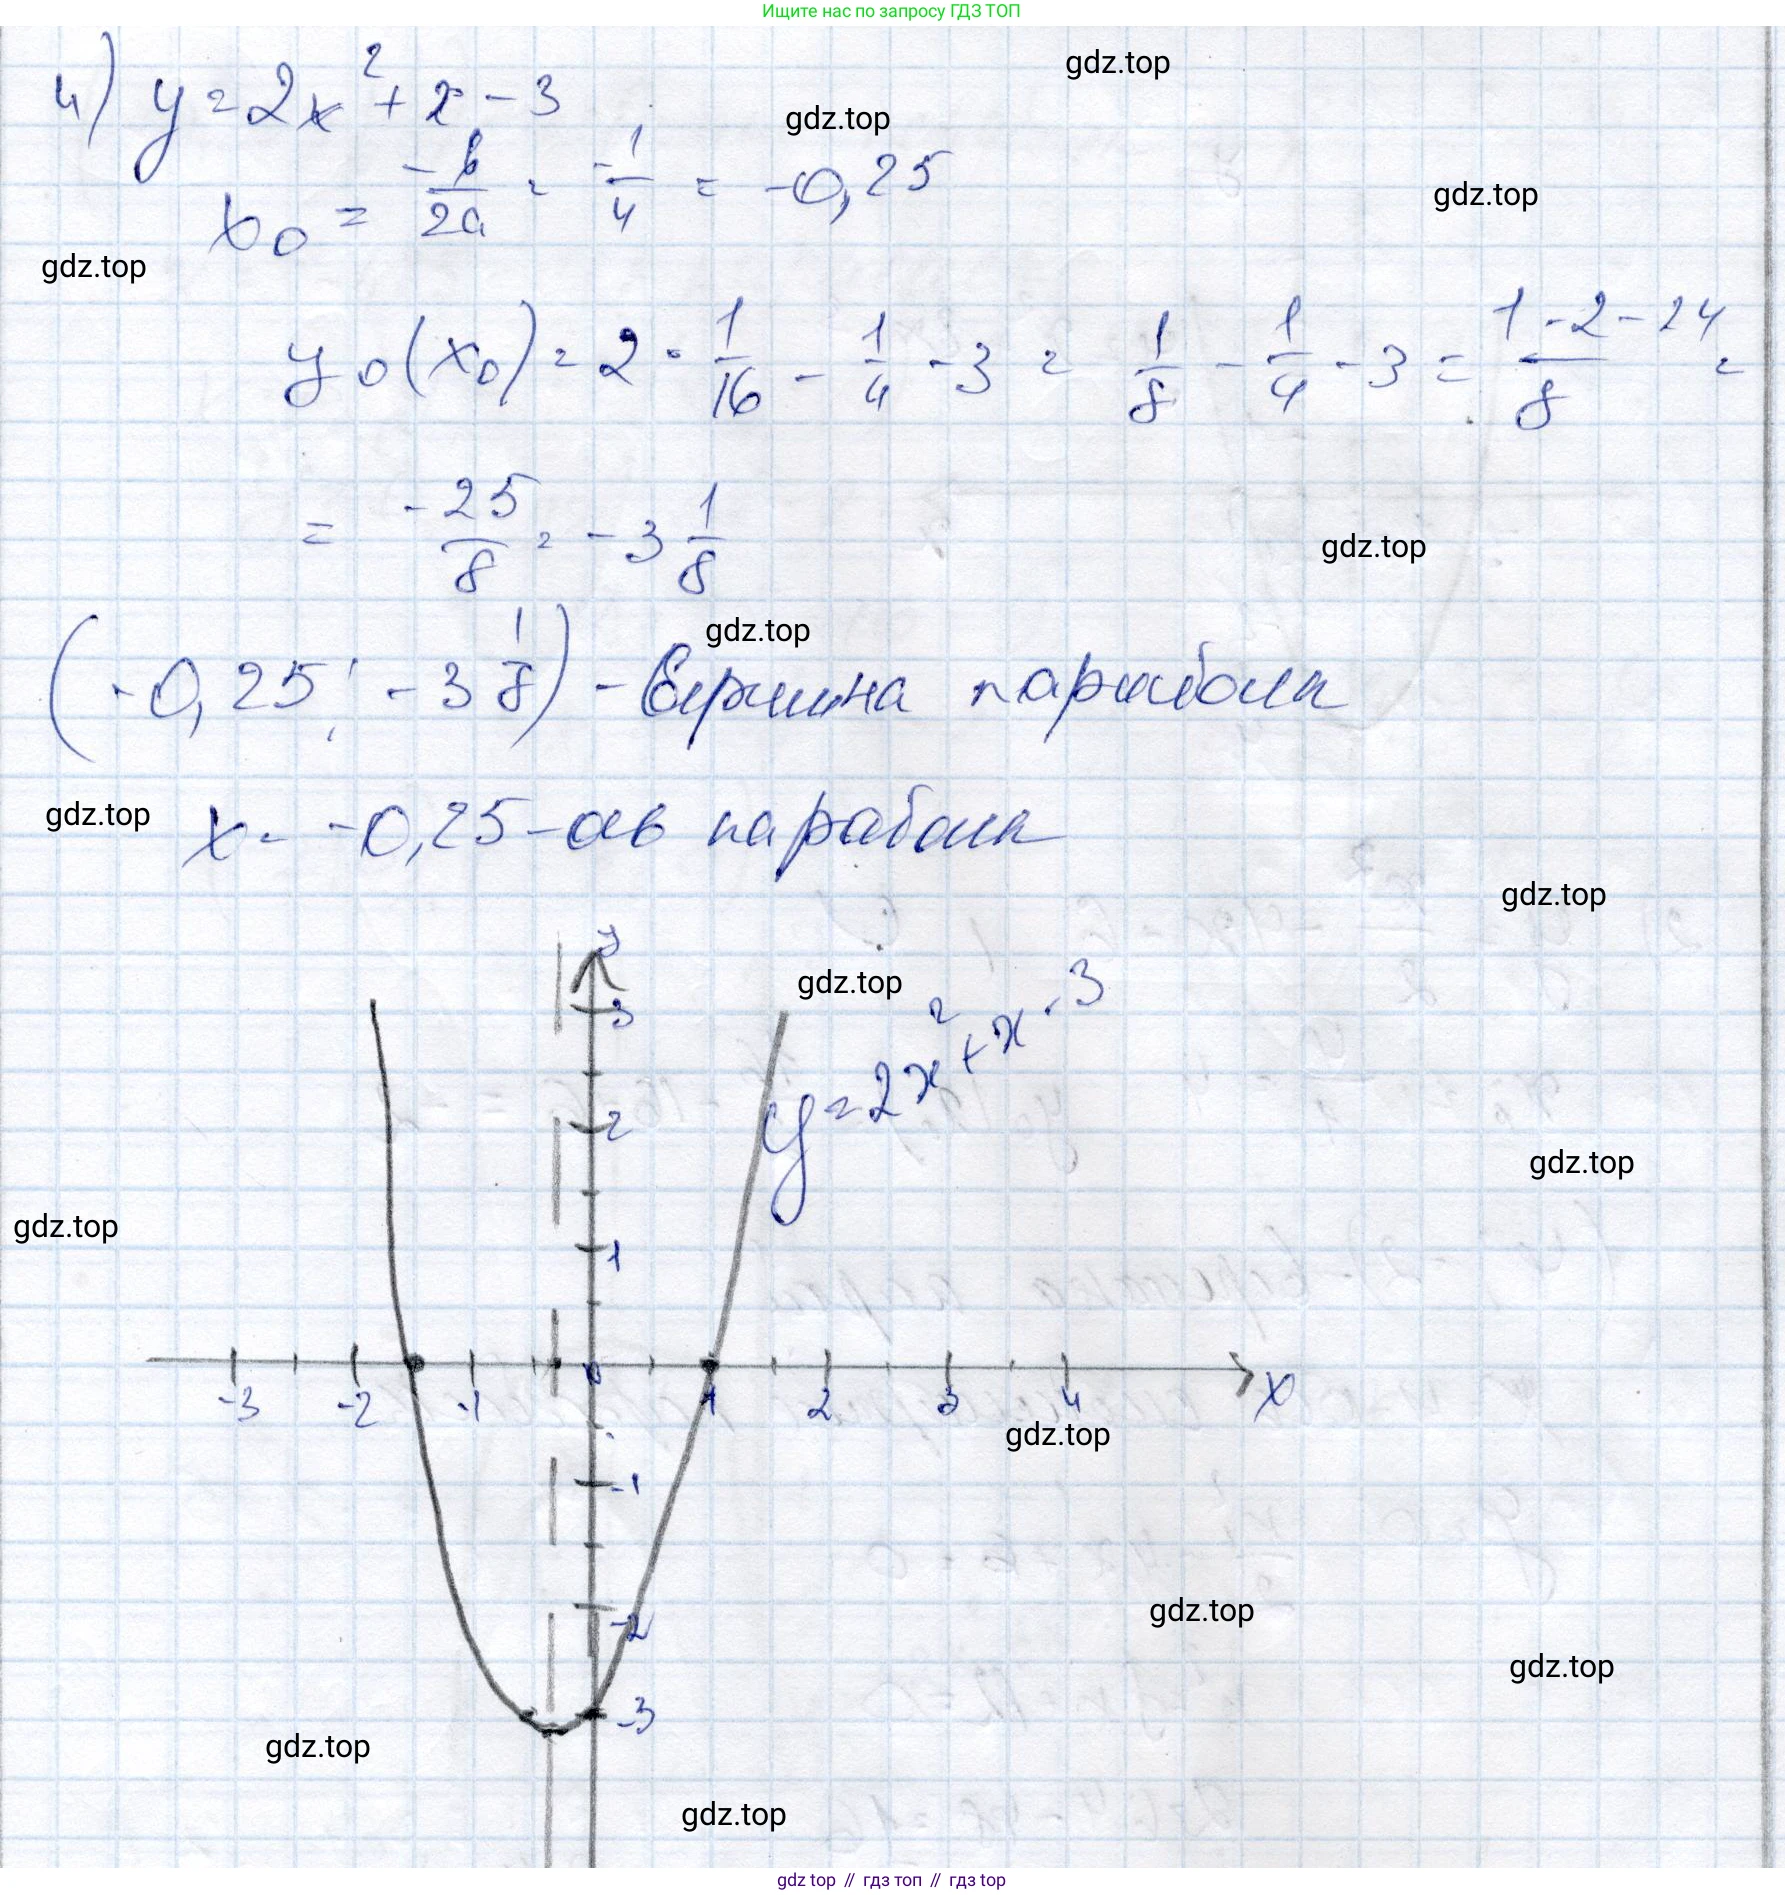 Ищите нас по запросу ГДЗ ТОП
gdz.top
4) y = 2x² + x - 3
gdz.top
x₀ = -b/2a = -1/4 = -0,25
gdz.top
gdz.top
y₀(x₀) = 2 · 1/16 - 1/4 - 3 = 1/8 - 1/4 - 3 = 1-2-24/8 =
= -25/8 = -3 1/8
gdz.top
gdz.top
(-0,25; -3 1/8) - вершина параболы
gdz.top
x = -0,25 - ось параболы
gdz.top
y
gdz.top
y = 2x² + x - 3
3
2
gdz.top
gdz.top
1
-3 -2 -1 0 1 2 3 4 x
gdz.top
-1
gdz.top
-2
gdz.top
-3
gdz.top
gdz.top
gdz top // гдз топ // гдз top